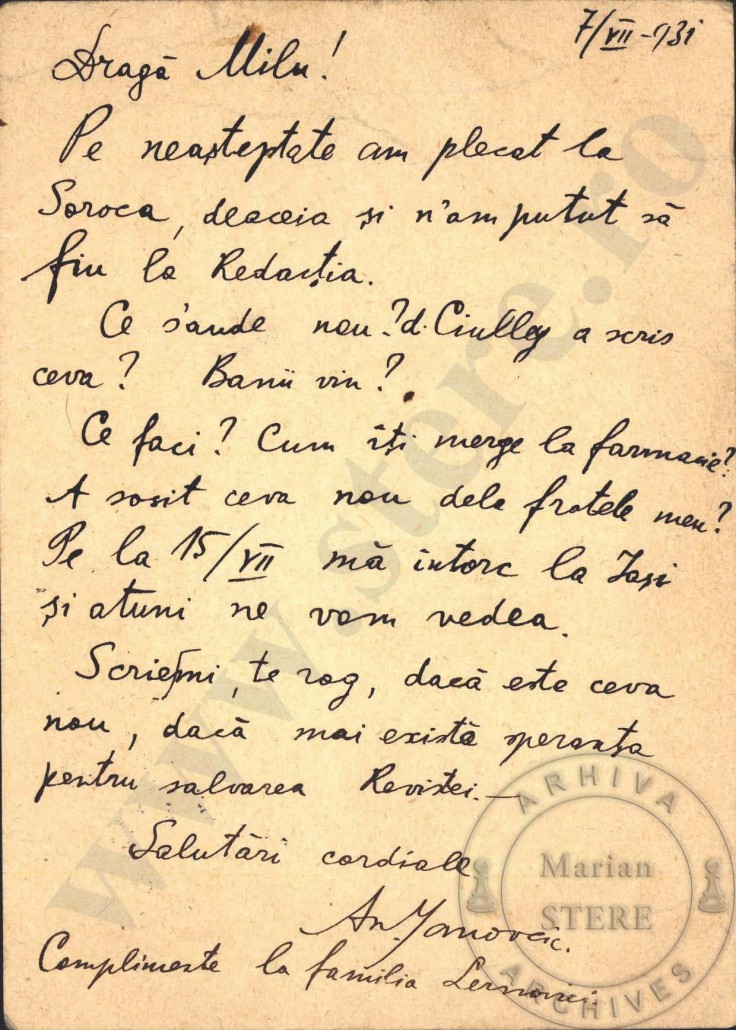 7/VII-931
Dragă Milu!
Pe neașteptate am plecat la
Soroca, deaceia și n'am putut să
fiu la Redacția.
Ce s'aude nou? d. Ciulley a scris
ceva? Banii vin?
Ce faci? Cum îți merge la farmacie?
A sosit ceva nou dela fratele meu?
Pe la 15/VII mă întorc la Iași
și atunci ne vom vedea.
Scrie-mi, te rog, dacă este ceva
nou, dacă mai există speranța
pentru salvarea Revistei.—
Salutări cordiale
An. Ianovcic.
Complimente la familia
www.stere.ro
ARHIVA
Marian
STERE
ARCHIVES